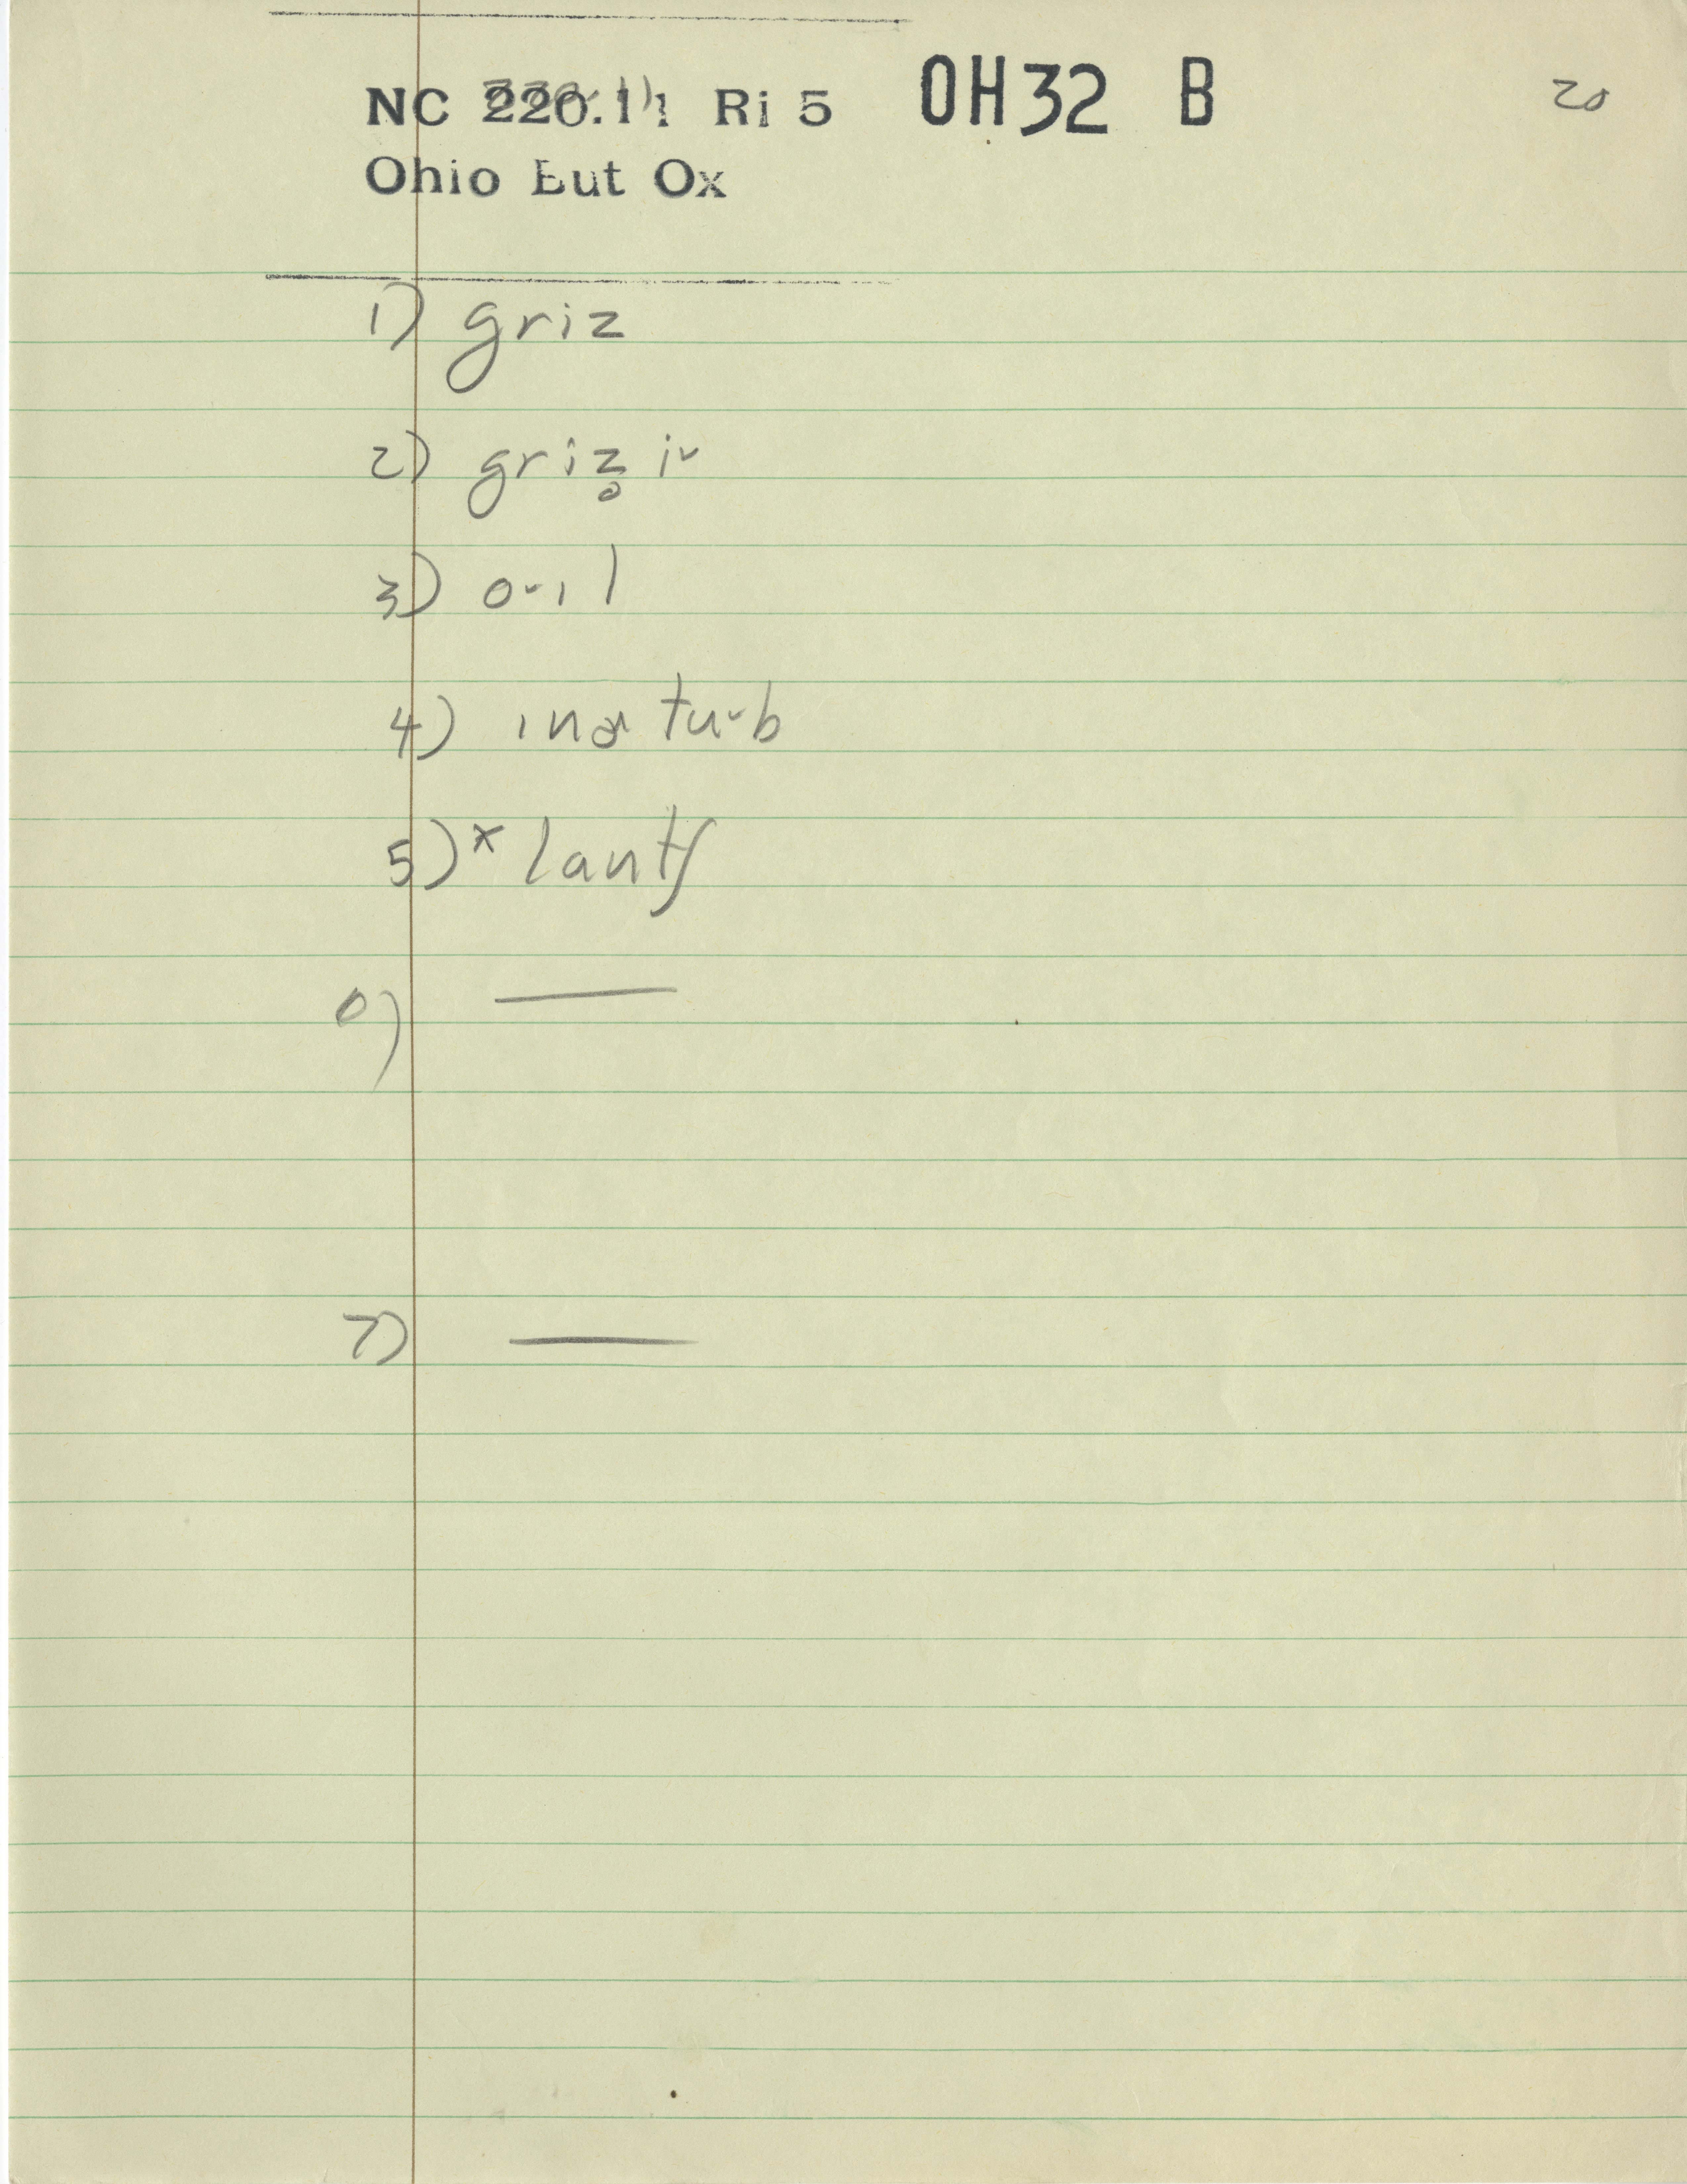 NC 220.11 Ri 5 OH32 B 20
Ohio But Ox
1) griz
2) griz̥ i˞
3) ɔ˞ɪl
4) ɪnə tɝb
5) * lantʃ
6) —
7) —